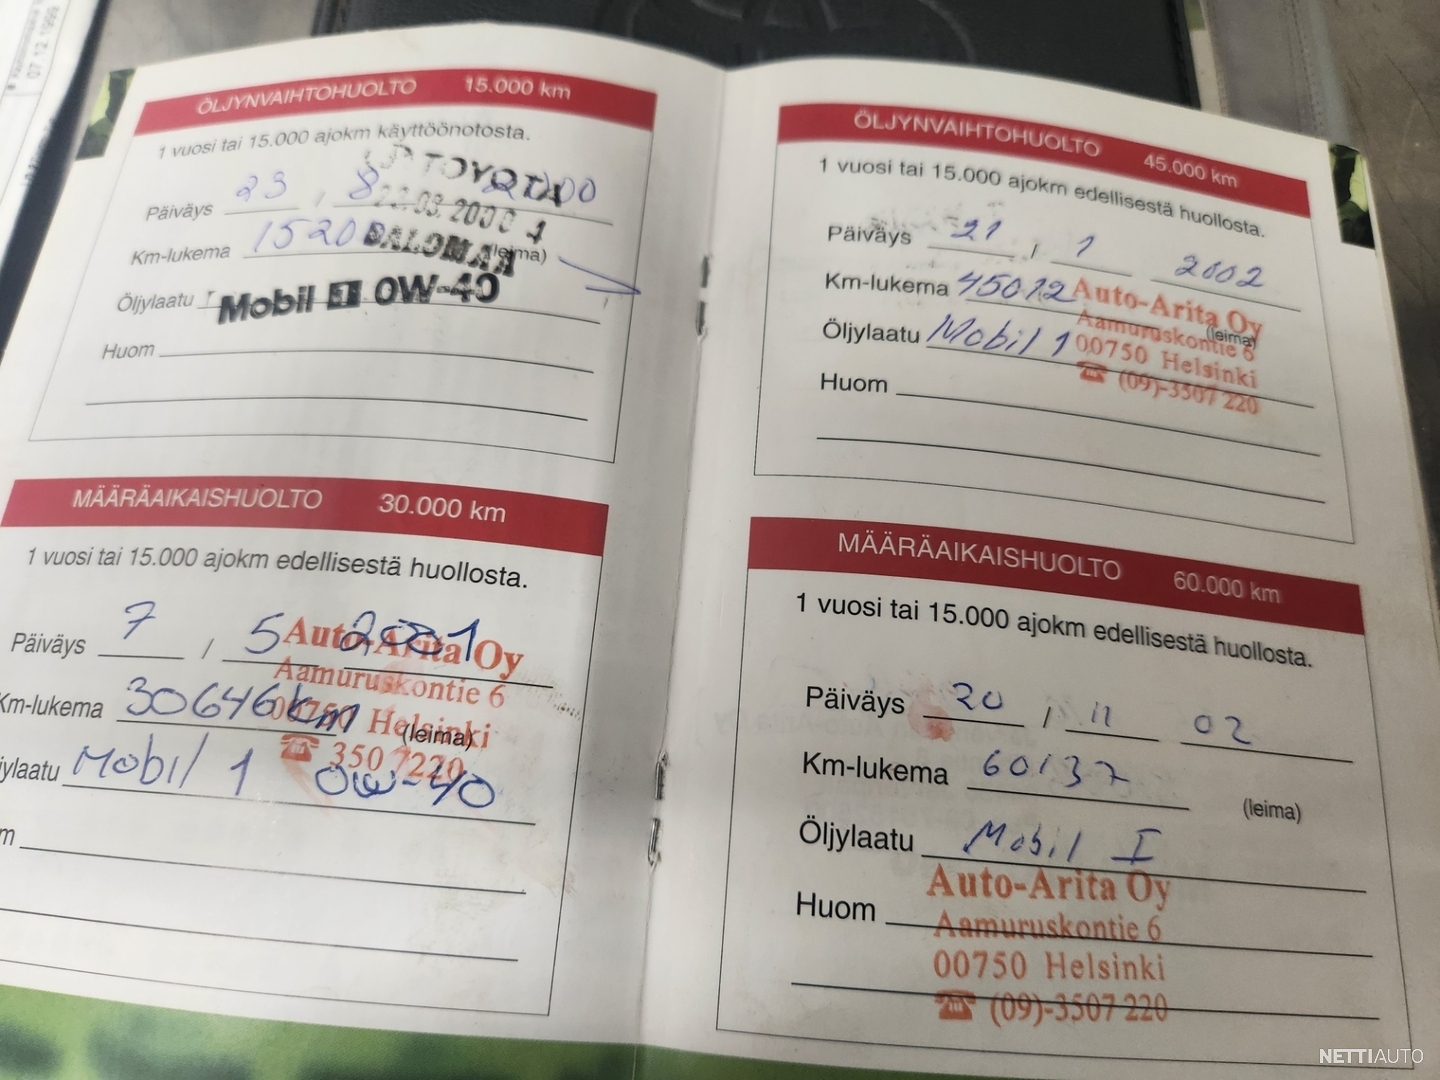 07 12 1999
ÖLJYNVAIHTOHUOLTO 15.000 km
1 vuosi tai 15.000 ajokm käyttöönotosta.
TOYOTA
Päiväys 23 / 8 2000
Km-lukema 1520
(leima)
Öljylaatu Mobil 1 0W-40
Huom
MÄÄRÄAIKAISHUOLTO 30.000 km
1 vuosi tai 15.000 ajokm edellisestä huollosta.
Päiväys 7 / 5 2001
Auto-Arita Oy
Aamuruskontie 6
Km-lukema 30646 km
00750 Helsinki
(leima)
350 7220
jylaatu Mobil 1 0W-40
m
ÖLJYNVAIHTOHUOLTO 45.000 km
1 vuosi tai 15.000 ajokm edellisestä huollosta.
Päiväys 21 / 1 2002
Km-lukema 45012
Auto-Arita Oy
Aamuruskontie 6
(leima)
Öljylaatu Mobil 1
00750 Helsinki
(09)-3507 220
Huom
MÄÄRÄAIKAISHUOLTO 60.000 km
1 vuosi tai 15.000 ajokm edellisestä huollosta.
Päiväys 20 / 11 02
Km-lukema 60137
(leima)
Öljylaatu Mobil I
Auto-Arita Oy
Huom
Aamuruskontie 6
00750 Helsinki
(09)-3507 220
NETTIAUTO